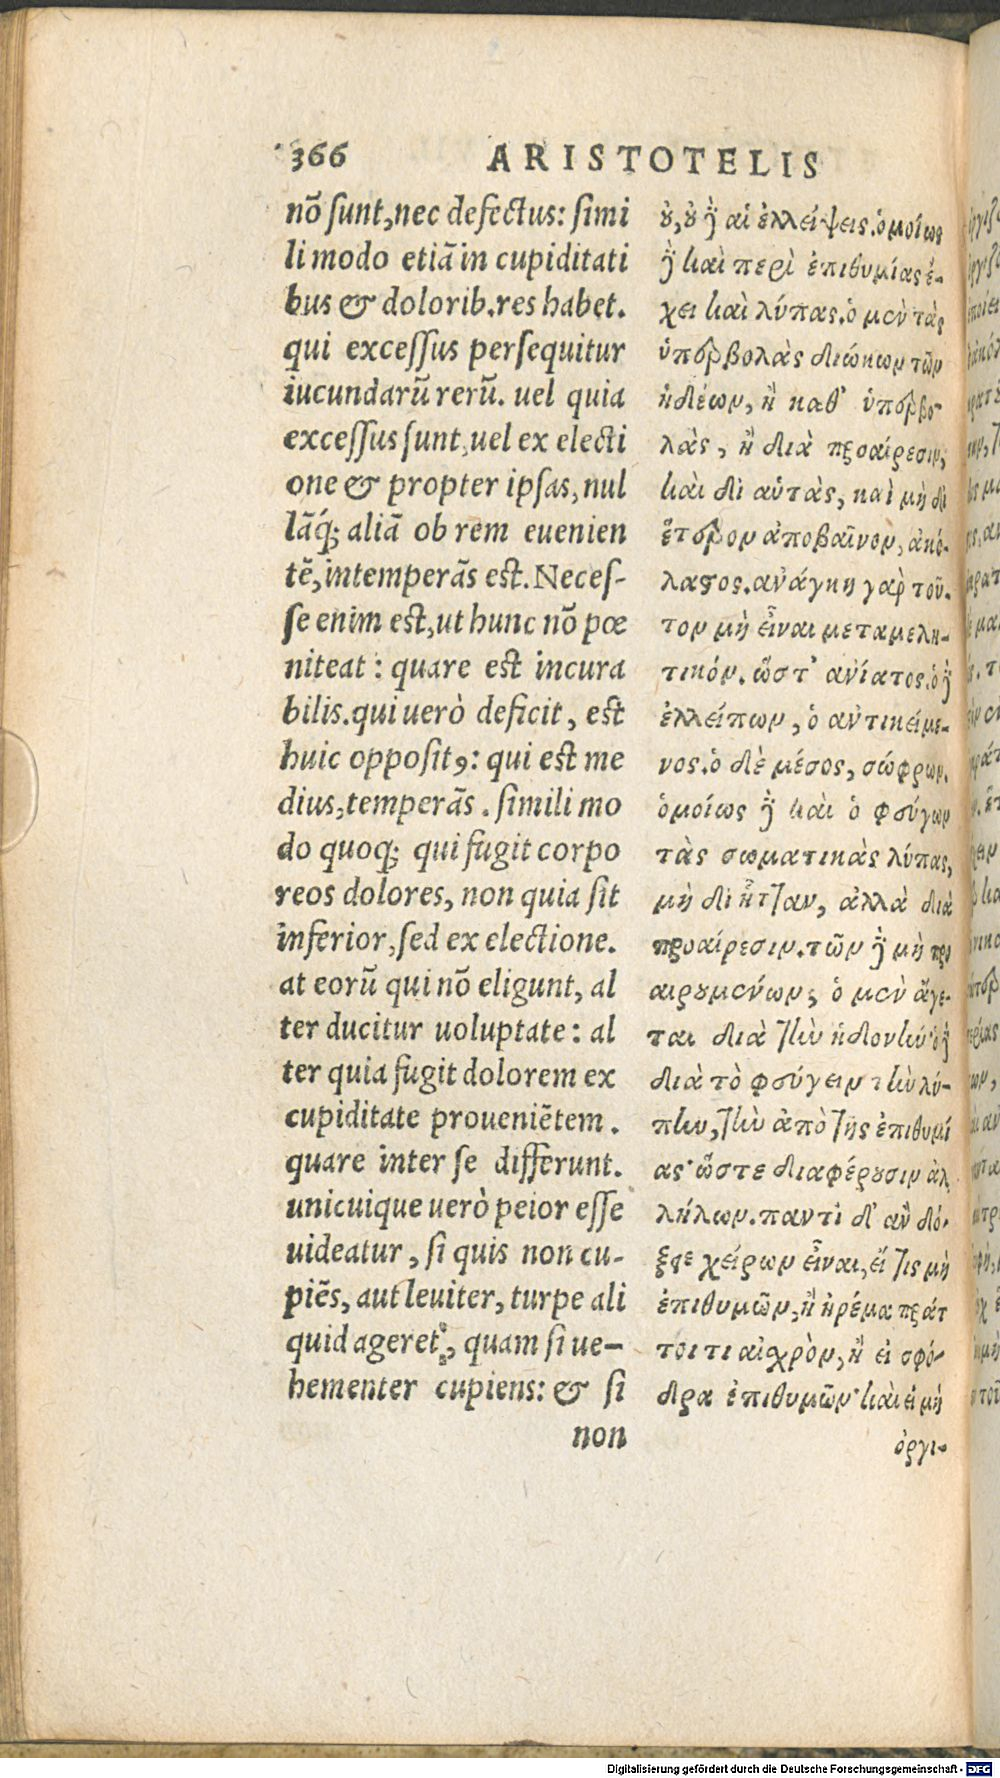 366 ARISTOTELIS
nō sunt, nec defectus: simi
li modo etiā in cupiditati
bus & dolorib. res habet.
qui excessus persequitur
iucundarū rerū. uel quia
excessus sunt, uel ex electi
one & propter ipsas, nul
lāq́; aliā ob rem euenien
tē, intemperās est. Neces-
se enim est, ut hunc nō pœ
niteat: quare est incura
bilis. qui uerò deficit, est
huic opposit9: qui est me
dius, temperās. simili mo
do quoq; qui fugit corpo
reos dolores, non quia sit
inferior, sed ex electione.
at eorū qui nō eligunt, al
ter ducitur uoluptate: al
ter quia fugit dolorem ex
cupiditate proueniētem.
quare inter se differunt.
unicuique uerò peior esse
uideatur, si quis non cu-
piēs, aut leuiter, turpe ali
quid ageret, quam si ue-
hementer cupiens: & si
non
ȣ, ȣ δὲ αἱ ἐλλείψεις. ὁμοίως
δὲ καὶ περὶ ἐπιθυμίας ἔ-
χει καὶ λύπας. ὁ μὲν τὰς
ὑπερβολὰς διώκων τῶν
ἡδέων, ἢ καθ' ὑπερβο-
λὰς, ἢ διὰ προαίρεσιν,
καὶ δι αὑτὰς, καὶ μὴ δι
ἕτερον ἀποβαῖνον, ἀκό-
λαστος. ἀνάγκη γὰρ τοῦ-
τον μὴ εἶναι μεταμελη-
τικόν. ὥστ' ἀνίατος. ὁ δὲ
ἐλλείπων, ὁ ἀντικείμε-
νος. ὁ δὲ μέσος, σώφρων.
ὁμοίως δὲ καὶ ὁ φεύγων
τὰς σωματικὰς λύπας,
μὴ δι ἧτταν, ἀλλὰ διὰ
προαίρεσιν. τῶν δὲ μὴ προ
αιρȣμένων, ὁ μὲν ἄγε-
ται διὰ τὴν ἡδονήν· ὁ δὲ
διὰ τὸ φεύγειν τὴν λύ-
πην, τὴν ἀπὸ τῆς ἐπιθυμί
ας· ὥστε διαφέρȣσιν ἀλ
λήλων. παντὶ δ' ἂν δό-
ξειε χείρων εἶναι, εἴ τις μὴ
ἐπιθυμῶν, ἢ ἠρέμα πράτ
τοι τι αἰσχρὸν, ἢ εἰ σφό-
δρα ἐπιθυμῶν· καὶ εἰ μὴ
ὀργι-
Digitalisierung gefördert durch die Deutsche Forschungsgemeinschaft - DFG